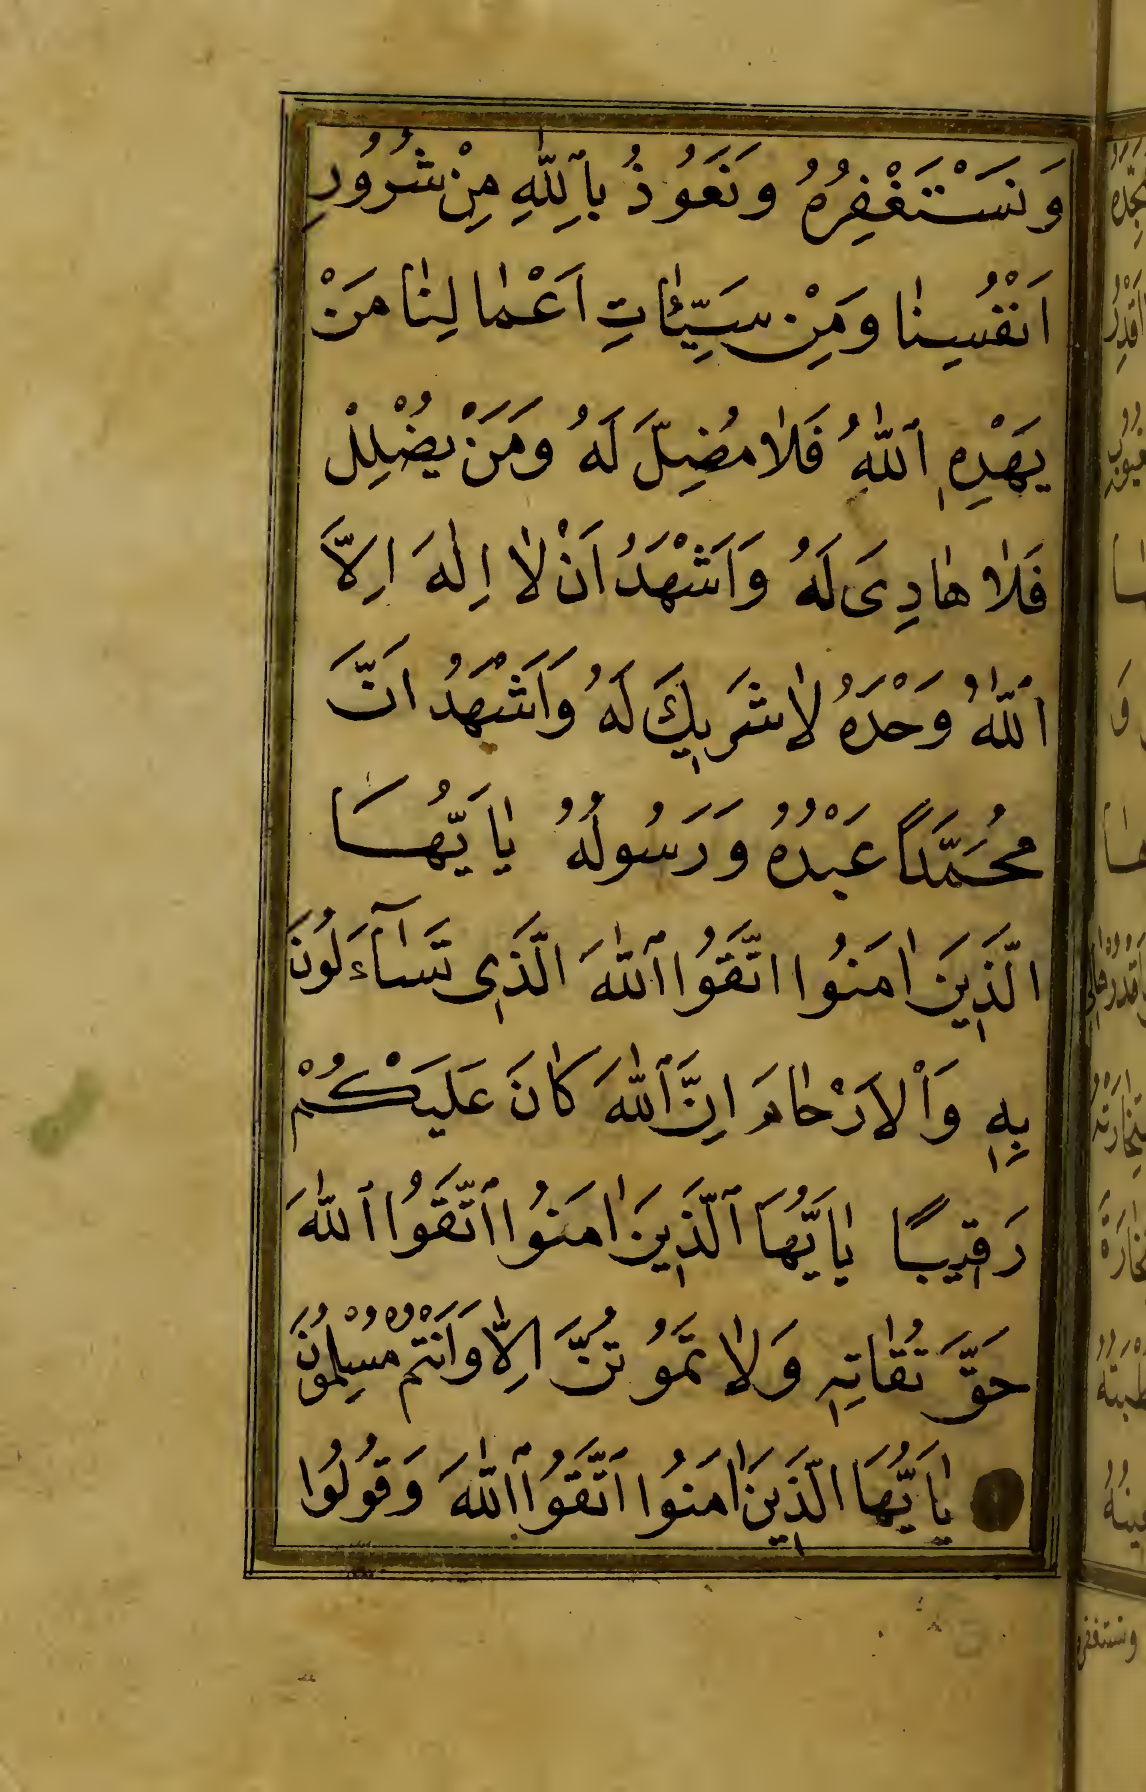 وَنَسْتَغْفِرُهُ وَنَعُوذُ بِٱللّٰهِ مِنْ شُرُورِ
اَنْفُسِنٰا وَمِنْ سَيِّئٰاتِ اَعْمٰالِنٰا مَنْ
يَهْدِهِ ٱللّٰهُ فَلٰا مُضِلَّ لَهُ وَمَنْ يُضْلِلْ
فَلٰا هٰادِىَ لَهُ وَاَشْهَدُ اَنْ لٰا اِلٰهَ اِلَّا
ٱللّٰهُ وَحْدَهُ لٰا شَرِيكَ لَهُ وَاَشْهَدُ اَنَّ
مُحَمَّدًا عَبْدُهُ وَرَسُولُهُ يٰاَيُّهَا
الَّذِينَ اٰمَنُوا اتَّقُوا ٱللّٰهَ الَّذِى تَسٰٓاءَلُونَ
بِهِ وَاْلاَرْحٰامَ اِنَّ ٱللّٰهَ كٰانَ عَلَيْكُمْ
رَقِيبًا يٰاَيُّهَا ٱلَّذِينَ اٰمَنُوا ٱتَّقُوا ٱللّٰهَ
حَقَّ تُقٰاتِهِ وَلٰا تَمُوتُنَّ اِلّٰا وَاَنْتُمْ مُسْلِمُونَ
يٰاَيُّهَا الَّذِينَ اٰمَنُوا ٱتَّقُوا ٱللّٰهَ وَقُولُوا
وستغفره